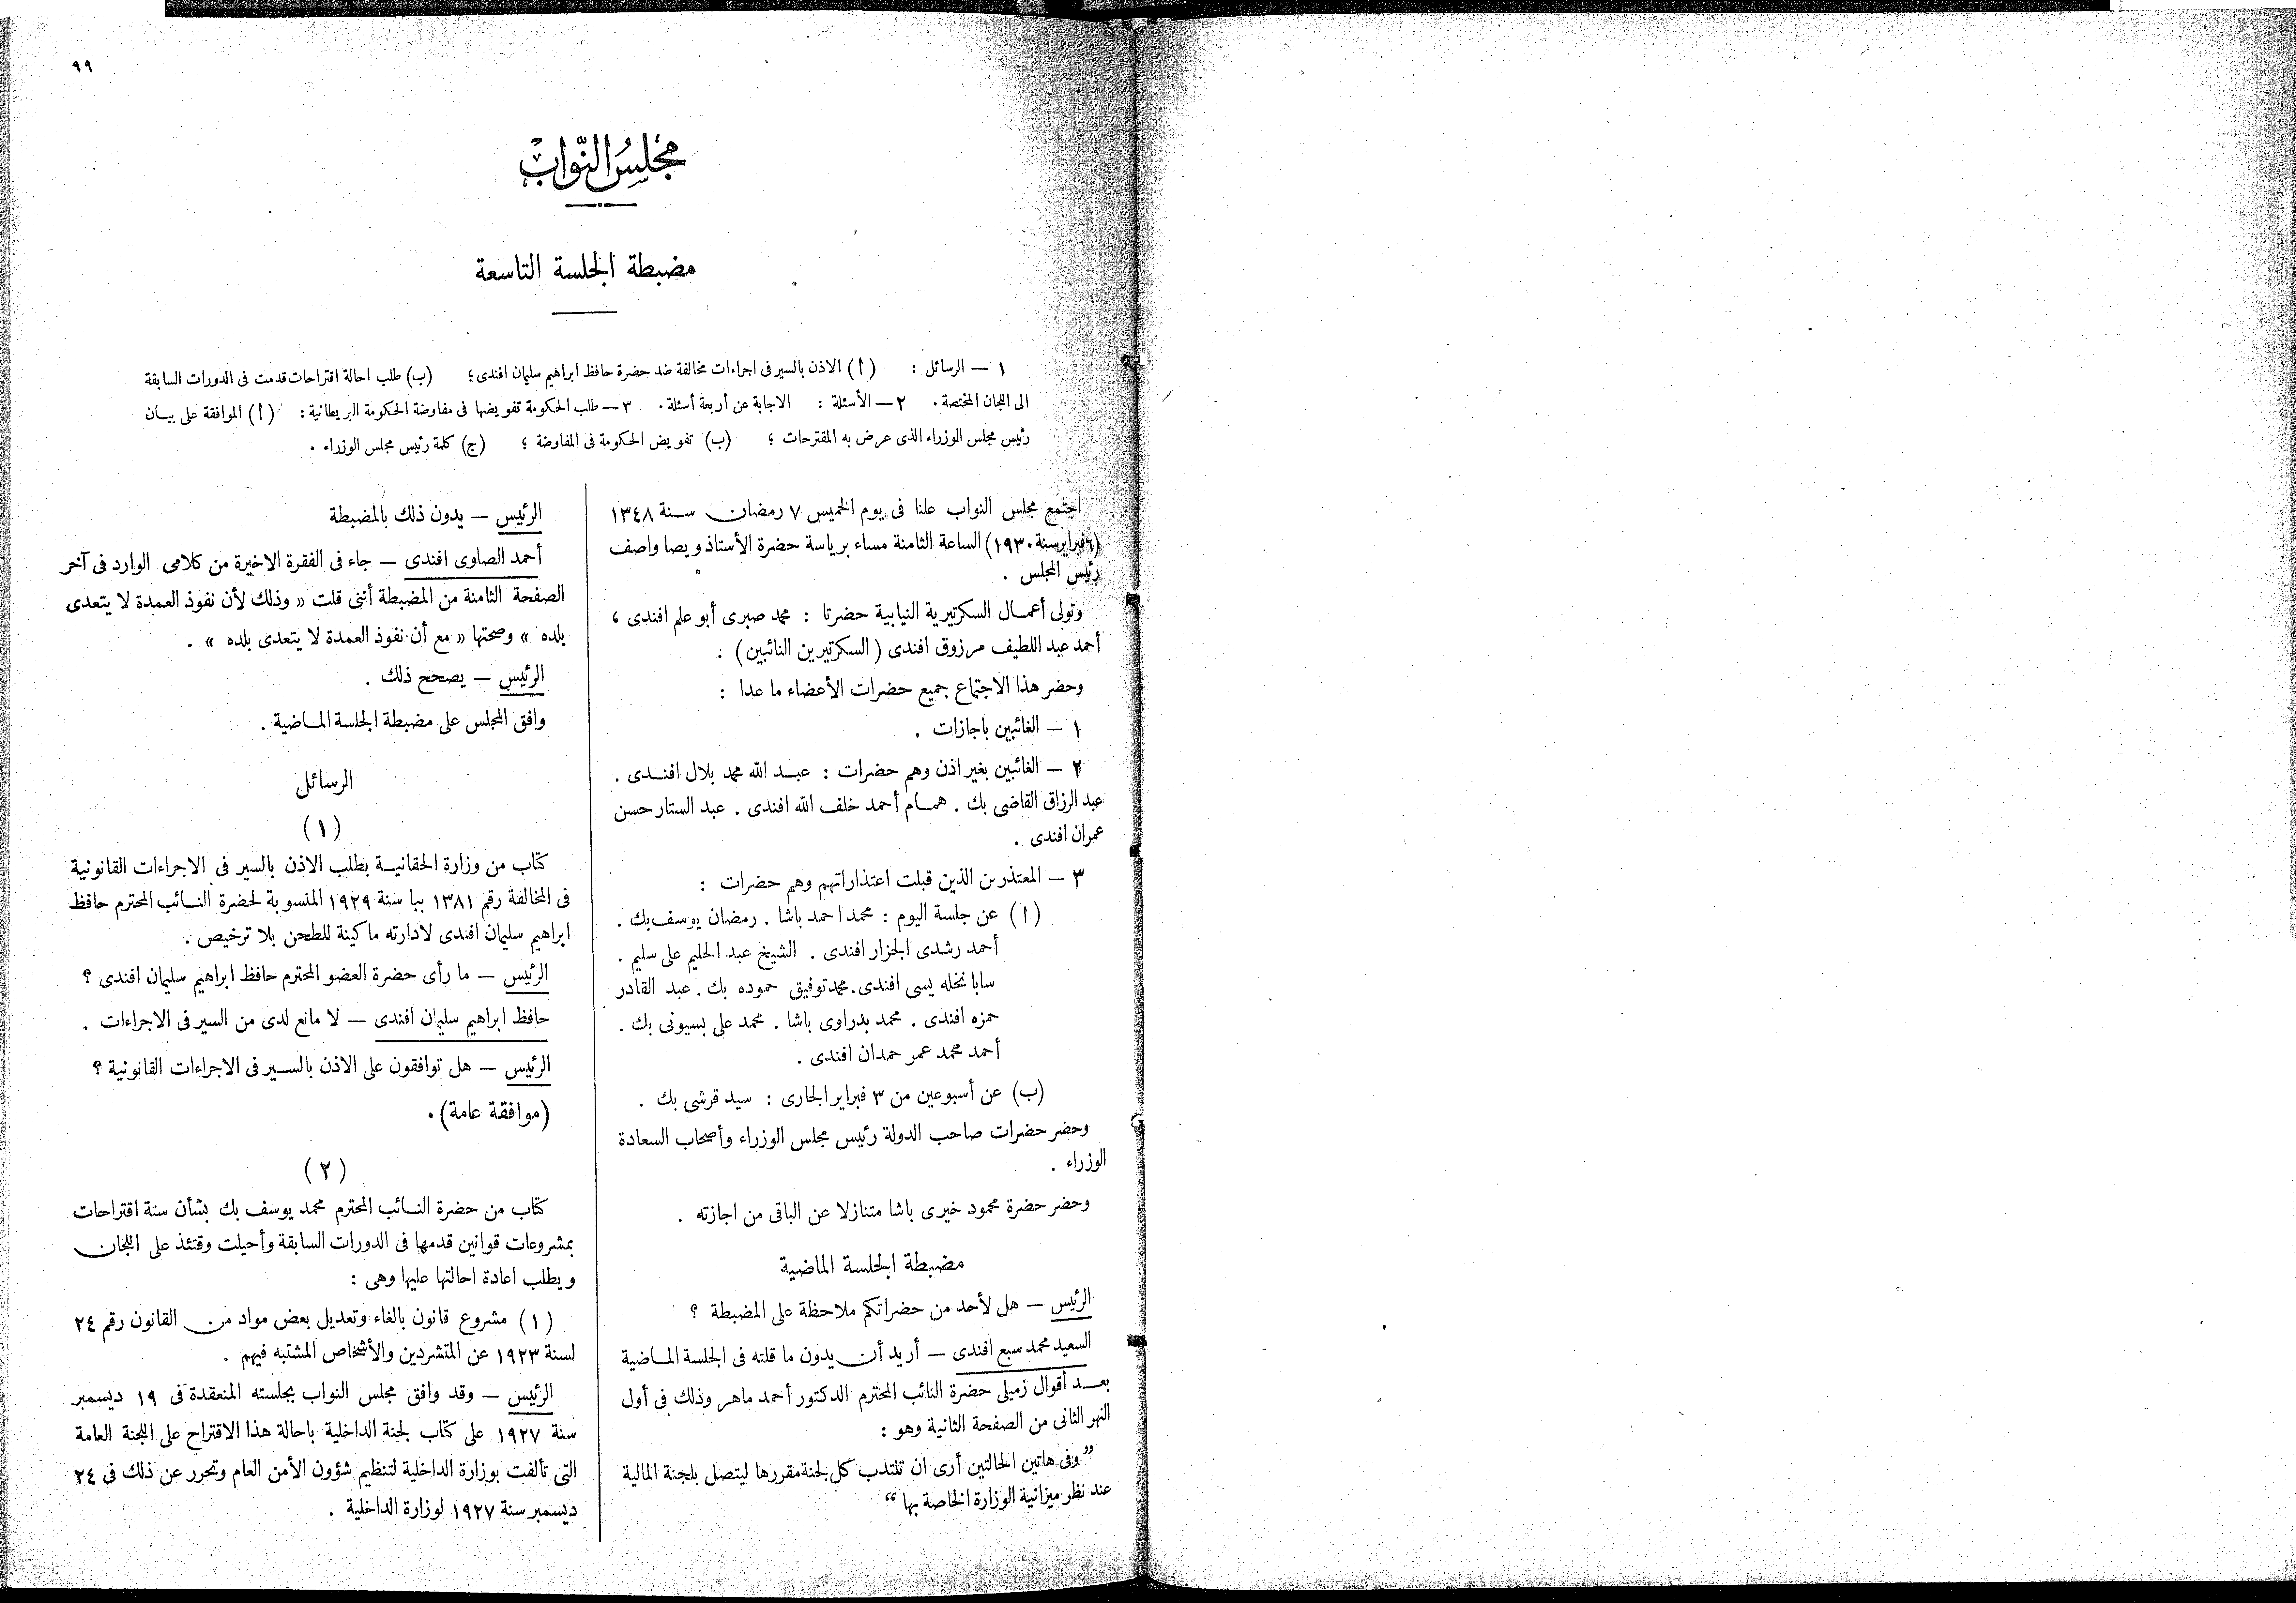 ٩٩
مجلس النواب
مضبطة الجلسة التاسعة
١ — الرسائل : (أ) الاذن بالسير فى اجراءات مخالفة ضد حضرة حافظ ابراهيم سليمان افندى؛ (ب) طلب احالة اقتراحات قدمت فى الدورات السابقة
الى اللجان المختصة . ٢ — الأسئلة : الاجابة عن أربعة أسئلة . ٣ — طلب الحكومة تفويضها فى مفاوضة الحكومة البريطانية : (أ) الموافقة على بيان
رئيس مجلس الوزراء الذى عرض به المقترحات ؛ (ب) تفويض الحكومة فى المفاوضة ؛ (ج) كلمة رئيس مجلس الوزراء .
اجتمع مجلس النواب علنا فى يوم الخميس ٧ رمضان سنة ١٣٤٨
(٦ فبراير سنة ١٩٣٠) الساعة الثامنة مساء برياسة حضرة الأستاذ ويصا واصف
رئيس المجلس .
وتولى أعمال السكرتيرية النيابية حضرتا : محمد صبرى أبو علم افندى ،
أحمد عبد اللطيف مرزوق افندى (السكرتيرين النائبين) .
وحضر هذا الاجتماع جميع حضرات الأعضاء ما عدا :
١ — الغائبين باجازات .
٢ — الغائبين بغير اذن وهم حضرات : عبد الله محمد بلال افندى .
عبد الرزاق القاضى بك . همام أحمد خلف الله افندى . عبد الستار حسن
عمران افندى .
٣ — المعتذرين الذين قبلت اعتذاراتهم وهم حضرات :
(أ) عن جلسة اليوم : محمد احمد باشا . رمضان يوسف بك .
أحمد رشدى الجزار افندى . الشيخ عبد الحليم على سليم .
سابا نخله يسى افندى . محمد توفيق حموده بك . عبد القادر
حمزه افندى . محمد بدراوى باشا . محمد على بسيونى بك .
أحمد محمد عمر حمدان افندى .
(ب) عن أسبوعين من ٣ فبراير الجارى : سيد قرشى بك .
وحضر حضرات صاحب الدولة رئيس مجلس الوزراء وأصحاب السعادة
الوزراء .
وحضر حضرة محمود خيرى باشا متنازلا عن الباقى من اجازته .
مضبطة الجلسة الماضية
الرئيس — هل لأحد من حضراتكم ملاحظة على المضبطة ؟
السعيد محمد سبع افندى — أريد أن يدون ما قلته فى الجلسة الماضية
بعد أقوال زميلى حضرة النائب المحترم الدكتور أحمد ماهر وذلك فى أول
النهر الثانى من الصفحة الثانية وهو :
”وفى هاتين الحالتين أرى ان تنتدب كل لجنة مقررها ليتصل بلجنة المالية
عند نظر ميزانية الوزارة الخاصة بها“
الرئيس — يدون ذلك بالمضبطة
أحمد الصاوى افندى — جاء فى الفقرة الاخيرة من كلامى الوارد فى آخر
الصفحة الثامنة من المضبطة أننى قلت « وذلك لأن نفوذ العمدة لا يتعدى
بلده » وصحتها « مع أن نفوذ العمدة لا يتعدى بلده » .
الرئيس — يصحح ذلك .
وافق المجلس على مضبطة الجلسة الماضية .
الرسائل
(١)
كتاب من وزارة الحقانية بطلب الاذن بالسير فى الاجراءات القانونية
فى المخالفة رقم ١٣٨١ ببا سنة ١٩٢٩ المنسوبة لحضرة النائب المحترم حافظ
ابراهيم سليمان افندى لادارته ماكينة للطحن بلا ترخيص .
الرئيس — ما رأى حضرة العضو المحترم حافظ ابراهيم سليمان افندى ؟
حافظ ابراهيم سليمان افندى — لا مانع لدى من السير فى الاجراءات .
الرئيس — هل توافقون على الاذن بالسير فى الاجراءات القانونية ؟
(موافقة عامة) .
(٢)
كتاب من حضرة النائب المحترم محمد يوسف بك بشأن ستة اقتراحات
بمشروعات قوانين قدمها فى الدورات السابقة وأحيلت وقتئذ على اللجان
ويطلب اعادة احالتها عليها وهى :
(١) مشروع قانون بالغاء وتعديل بعض مواد من القانون رقم ٢٤
لسنة ١٩٢٣ عن المتشردين والأشخاص المشتبه فيهم .
الرئيس — وقد وافق مجلس النواب بجلسته المنعقدة فى ١٩ ديسمبر
سنة ١٩٢٧ على كتاب لجنة الداخلية باحالة هذا الاقتراح على اللجنة العامة
التى تألفت بوزارة الداخلية لتنظيم شؤون الأمن العام وتحرر عن ذلك فى ٢٤
ديسمبر سنة ١٩٢٧ لوزارة الداخلية .